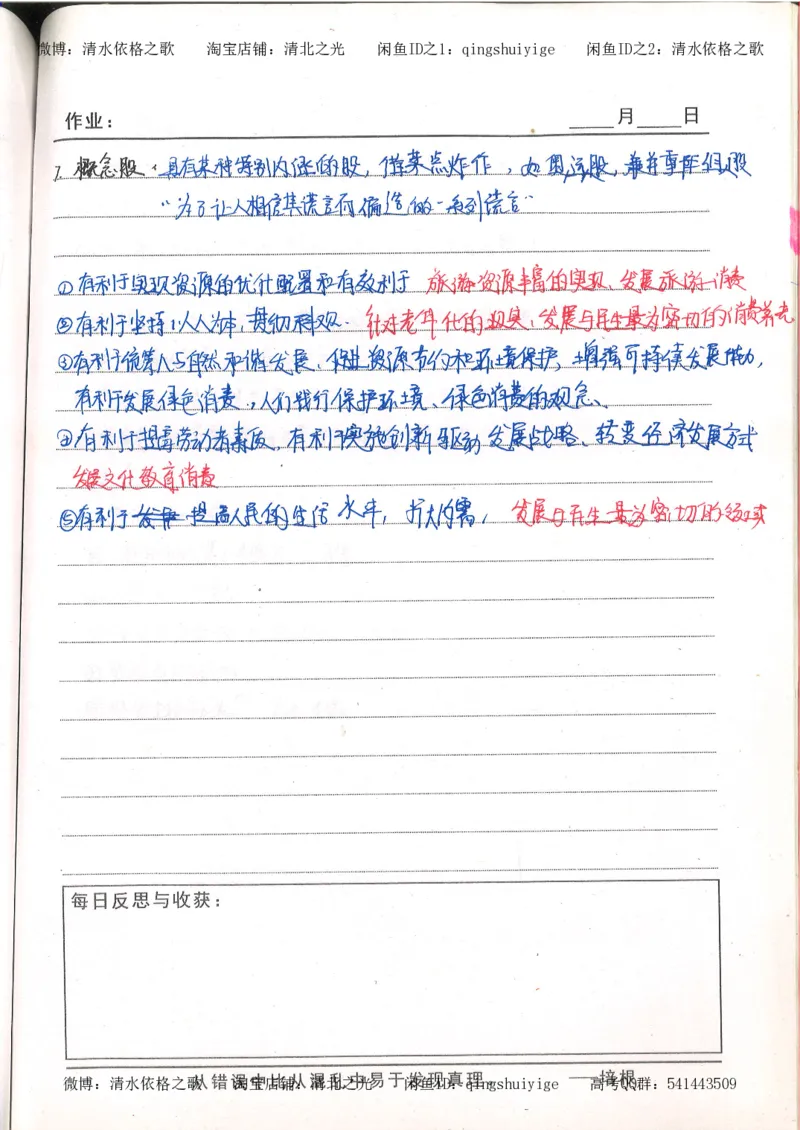 微博：清水依格之歌 淘宝店铺：清北之光 闲鱼ID之1：qingshuiyige 闲鱼ID之2：清水依格之歌
作业： 月 日
7. 概念股：具有某种特别内涵的股，借某点炸作，如奥运股，兼并重组股
“为了让人相信其谎言而编造的一系列谎言”
①有利于实现资源的优化配置和有效利于 旅游资源丰富的奥现、发展旅游消费
②有利于坚持以人为本，贯彻科观. 针对老年化的现具，发展与民生最为密切的消费养老
③有利于统筹人与自然和谐发展、促进资源节约和环境保护，增强可持续发展能力，
有利于发展绿色消费，人们践行保护环境、绿色消费的观念、
④有利于提高劳动者素质，有利于实施创新驱动发展战略、转变经济发展方式
发展文化教育消费
⑤有利于 提高人民的生活水平，扩大内需，发展与民生最为密切的领域
每日反思与收获：
从错误中比从混乱中易于发现真理。 ——培根
微博：清水依格之歌 淘宝店铺：清北之光 闲鱼ID：qingshuiyige 高考QQ群：541443509